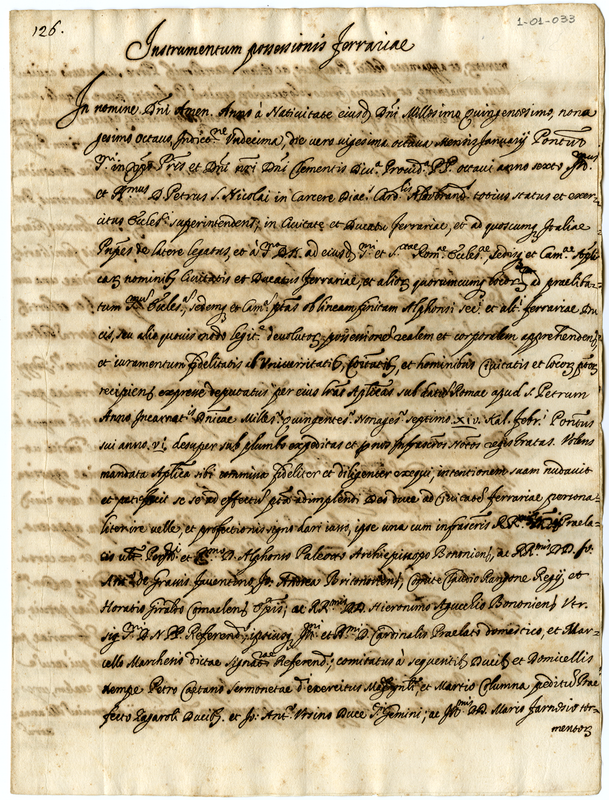 126.
1-01-033
Instrumentum possessionis Ferrariae
In nomine Dñi Amen. Anno à Nativitate eiusd. Dñi Millesimo quingentesimo, nona
gesimo octavo, Indicne Undecima, die vero vigesima octava Mensis Januarij Pontus
Smi in Xpo Pris et Dñi nri Dñi Clementis Diva Provida PP. octavi anno sexto Illmus
et Rmus D. Petrus S. Nicolai in Carcere Diacs Cardlis Aldobrands totius status et exer-
citus Eccles. superintendens, in Civitate et Ducatu Ferrariae, et ad quoscunq Italiae
Pnpes de latere legatus, et à S. D. N. ad eiusd. Smi et S. ctae Romae Eccles.ae, sedis et Camae Apli
cae nominib. Civitatis et Ducatus Ferrariae, et alior. quorumcumq locor. ad praeliba-
tum Eccles. sedemq et Cam. ptas ob lineam finitam Alphonsi sec. et alt. Ferrariae Du
cis, seu alio quovis modo legit. devolutor. possessionē realem et corporalem apprehendens
et iuramentum fidelitatis ab Universitatib. Coitatib. et hominibus Civitatis et locor. ptor.
recipiens expresse deputatus per eius lras Aplicas sub dat. Romae apud S. Petrum
Anno Incarnatis Dnicae Milless. quingentess. Nonages. septimo XIV. Kal. Febr. Pontus
sui anno VI. desuper sub plumbo expeditas et Notos Volens
mandata Aplica sibi commissa fideliter et diligenter exequi, intentionem suam nudavit
et patefecit se se ad effectus pta adimplendi Deo duce ad Civitate Ferrariae persona-
liter ire velle, et profectionis signo dari iusso, ipse una cum infrascris RRmis Praela-
cis vltr. D. Alphonso Paleoto Archiepiscopo Bononiens, ac RRmis DD. Jo.
de Grassis Faventino, Jo. Andrea Comite Claudio Rangone Regij et
Horatio Giraldo Comaclens Epis; ac RRmis DD. Hieronimo Agucchio Bononiens Vtr.
Sig. Smi D. N. PP. Referend., ipsiusq Illmi et Rmi D. Cardinalis Praelato domestico, et Mar-
cello Marchens dictae Signatae Referend.; comitatus à sequentib. Ducib. et Domicellis
nempe Petro Caetano Sermonetae et Martio Columna peditu Prae
fecto Zagaroli Ducib. et Jo. Ant. Vrsino Duce S. Gemini; ac Illmis DD. Mario Farnesio tor-
mentor.